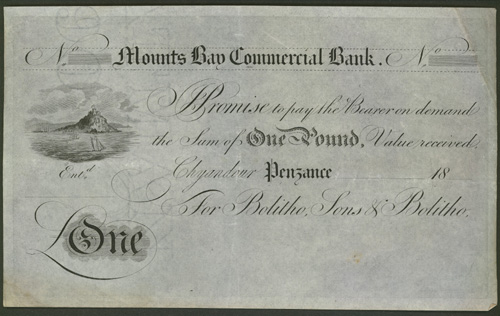 No Mounts Bay Commercial Bank. No
I Promise to pay the Bearer on demand
the Sum of One Pound, Value received
Chyandour Penzance 18
Entd.
For Bolitho, Sons & Bolitho.
£One